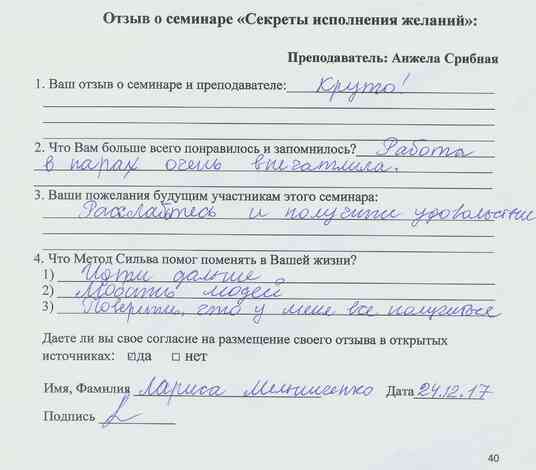 Отзыв о семинаре «Секреты исполнения желаний»:
Преподаватель: Анжела Срибная
1. Ваш отзыв о семинаре и преподавателе: Круто!
2. Что Вам больше всего понравилось и запомнилось? Работа
в парах очень впечатлила.
3. Ваши пожелания будущим участникам этого семинара:
Расслабтесь и получити удовольствие
4. Что Метод Сильва помог поменять в Вашей жизни?
1) Идти дальше
2) Любить людей
3) Поверити, что у меня все получиться
Даете ли вы свое согласие на размещение своего отзыва в открытых
источниках: ☑да □ нет
Имя, Фамилия Лариса Дата 24.12.17
Подпись
40